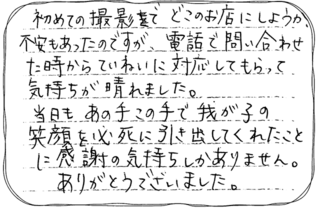 初めての撮影まで どこのお店にしようか、
不安もあったのですが、電話で問い合わせ
た時からていねいに対応してもらって
気持ちが晴れました。
当日も あの手この手で 我が子の
笑顔を必死に引き出してくれたこと
に感謝の気持ちしかありません。
ありがとうございました。